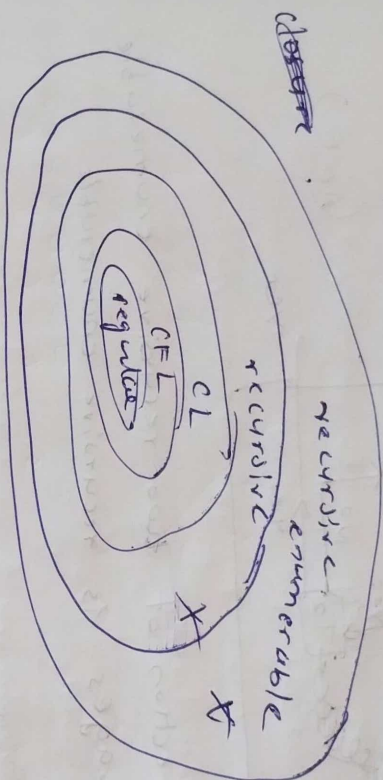 regular
CFL
CL
recursive
recursive
enumerable
X
X